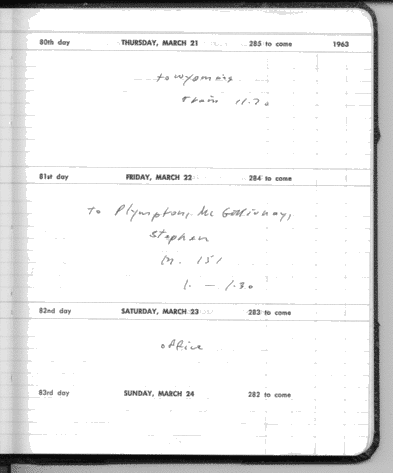 80th day THURSDAY, MARCH 21 285 to come 1963
to Wyoming
train 11.70
81st day FRIDAY, MARCH 22 284 to come
to Plympton, Mc Gillivray,
Stephen
m. 151
1. — 1.30
82nd day SATURDAY, MARCH 23 283 to come
office
83rd day SUNDAY, MARCH 24 282 to come